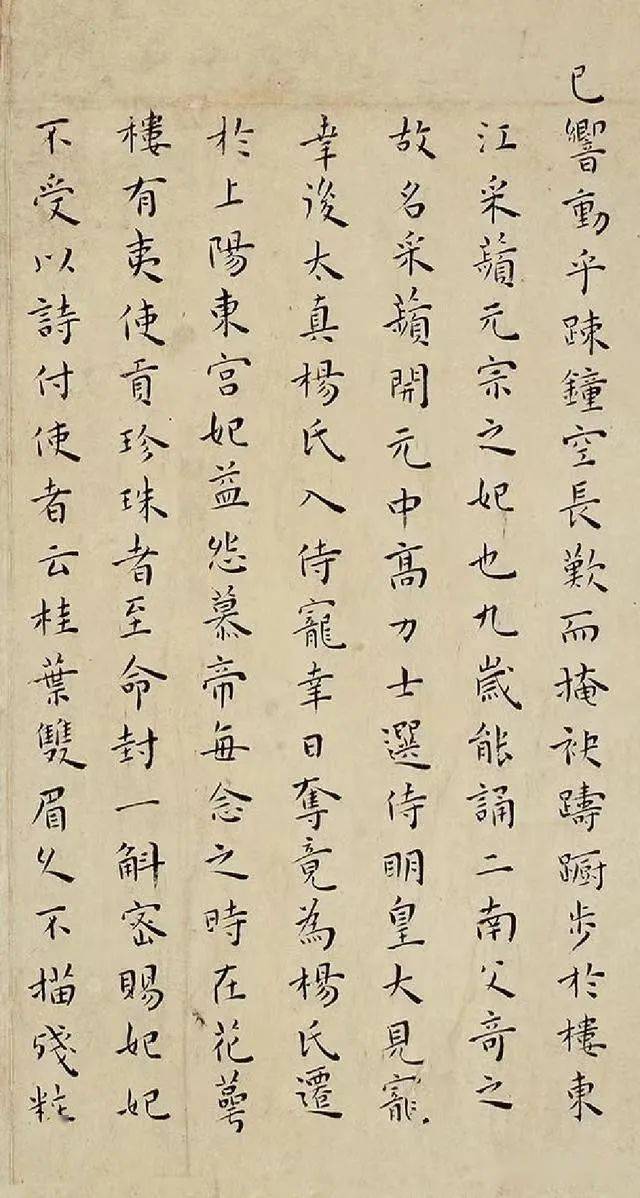 已響動乎疎鐘空長歎而掩袂躊躕步於樓東
江采蘋元宗之妃也九歲能誦二南父奇之
故名采蘋開元中高力士選侍明皇大見寵
幸後太真楊氏入侍寵幸日奪竟為楊氏遷
於上陽東宮妃益怨慕帝每念之時在花萼
樓有夷使貢珍珠者至命封一斛密賜妃妃
不受以詩付使者云桂葉雙眉久不描殘粧